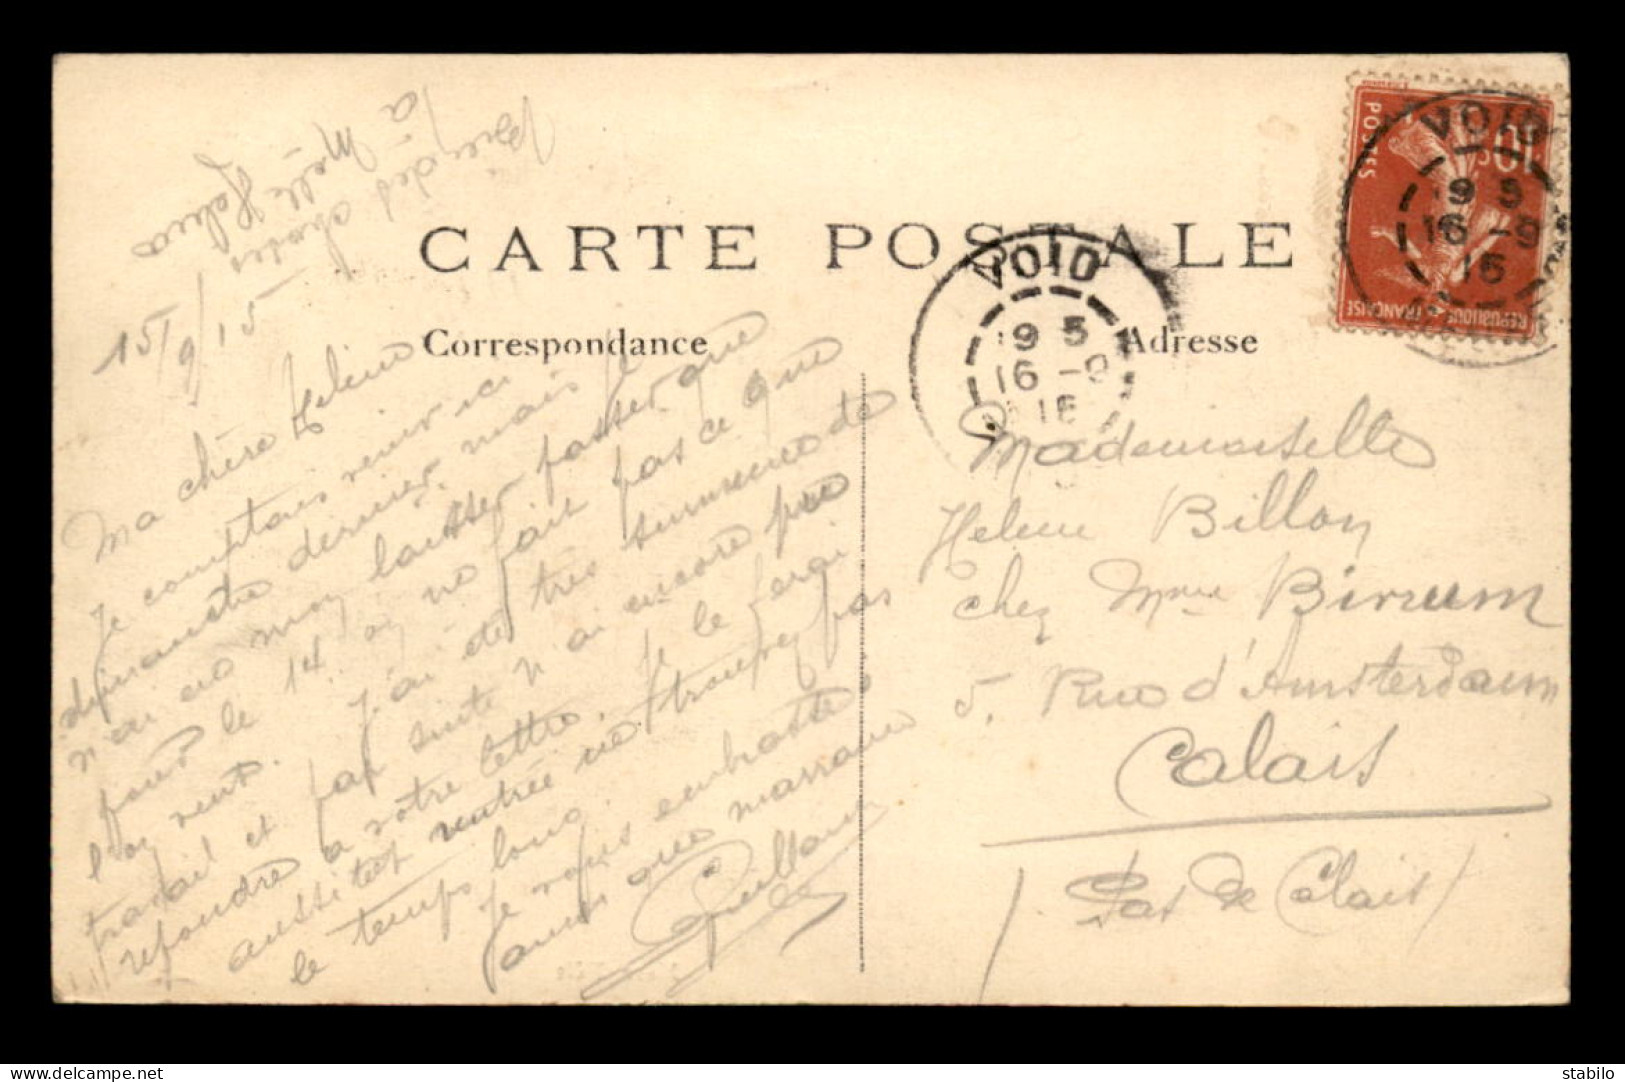 CARTE POSTALE
Correspondance
Adresse
VOID
19 5
16 -9
15
VOID
19 5
16 -9
15
10c
POSTES
REPUBLIQUE FRANÇAISE
à Melle Helene
15/9/15
Ma chère Helene
Je comptais venir ici
dimanche dernier, mais je
n'en ai moy laisser passer que
pour le 14. on ne fait pas ce que
l'on veut. J'ai été très surmené de
travail et par suite n'ai encore pu
repondre a votre lettre. Je le ferai
aussitot rentrée ne trouvez pas
le temps long.
Je vous embrasse
ainsi que marraine
Guillaume
Mademoiselle
Helene Billon
Chez Mme Birnum
5, Rue d'Amsterdam
Calais
(Pas de Calais)
www.delcampe.net
stabilo